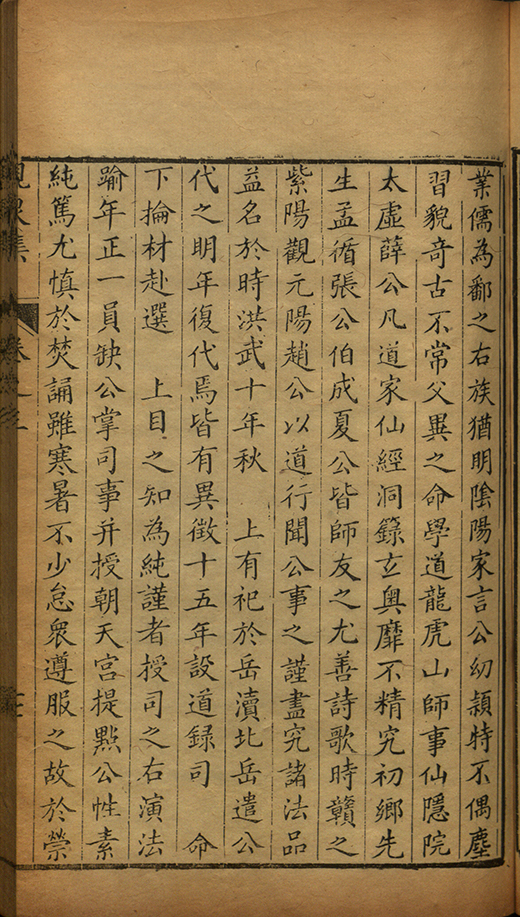 業儒為鄱之右族猶明陰陽家言公幼頴特不偶塵
習貌奇古不常父異之命學道龍虎山師事仙隱院
太虛薛公凡道家仙經洞籙玄奥靡不精究初鄉先
生孟循張公伯成夏公皆師友之尤善詩歌時贛之
紫陽觀元陽趙公以道行聞公事之謹盡究諸法品
益名於時洪武十年秋　上有祀於岳瀆北岳遣公
代之明年復代焉皆有異徵十五年設道録司　命
下掄材赴選　上目之知為純謹者授司之右演法
踰年正一員缺公掌司事并授朝天宮提㸃公性素
純篤尤慎於焚誦雖寒暑不少怠衆遵服之故於榮
峴泉集　卷之三